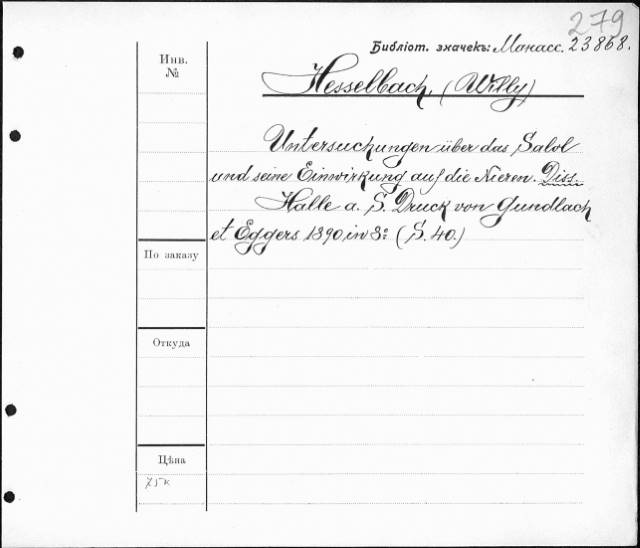 279
Библіот. значекъ: Манасс. 23868.
Инв.
№
Hesselbach, (Willy)
Untersuchungen über das Salol
und seine Einwirkung auf die Nieren. Diss.
Halle a. S. Druck von Gundlach
et Eggers 1890, in 8º (S. 40.)
По заказу
Откуда
Цѣна
75к